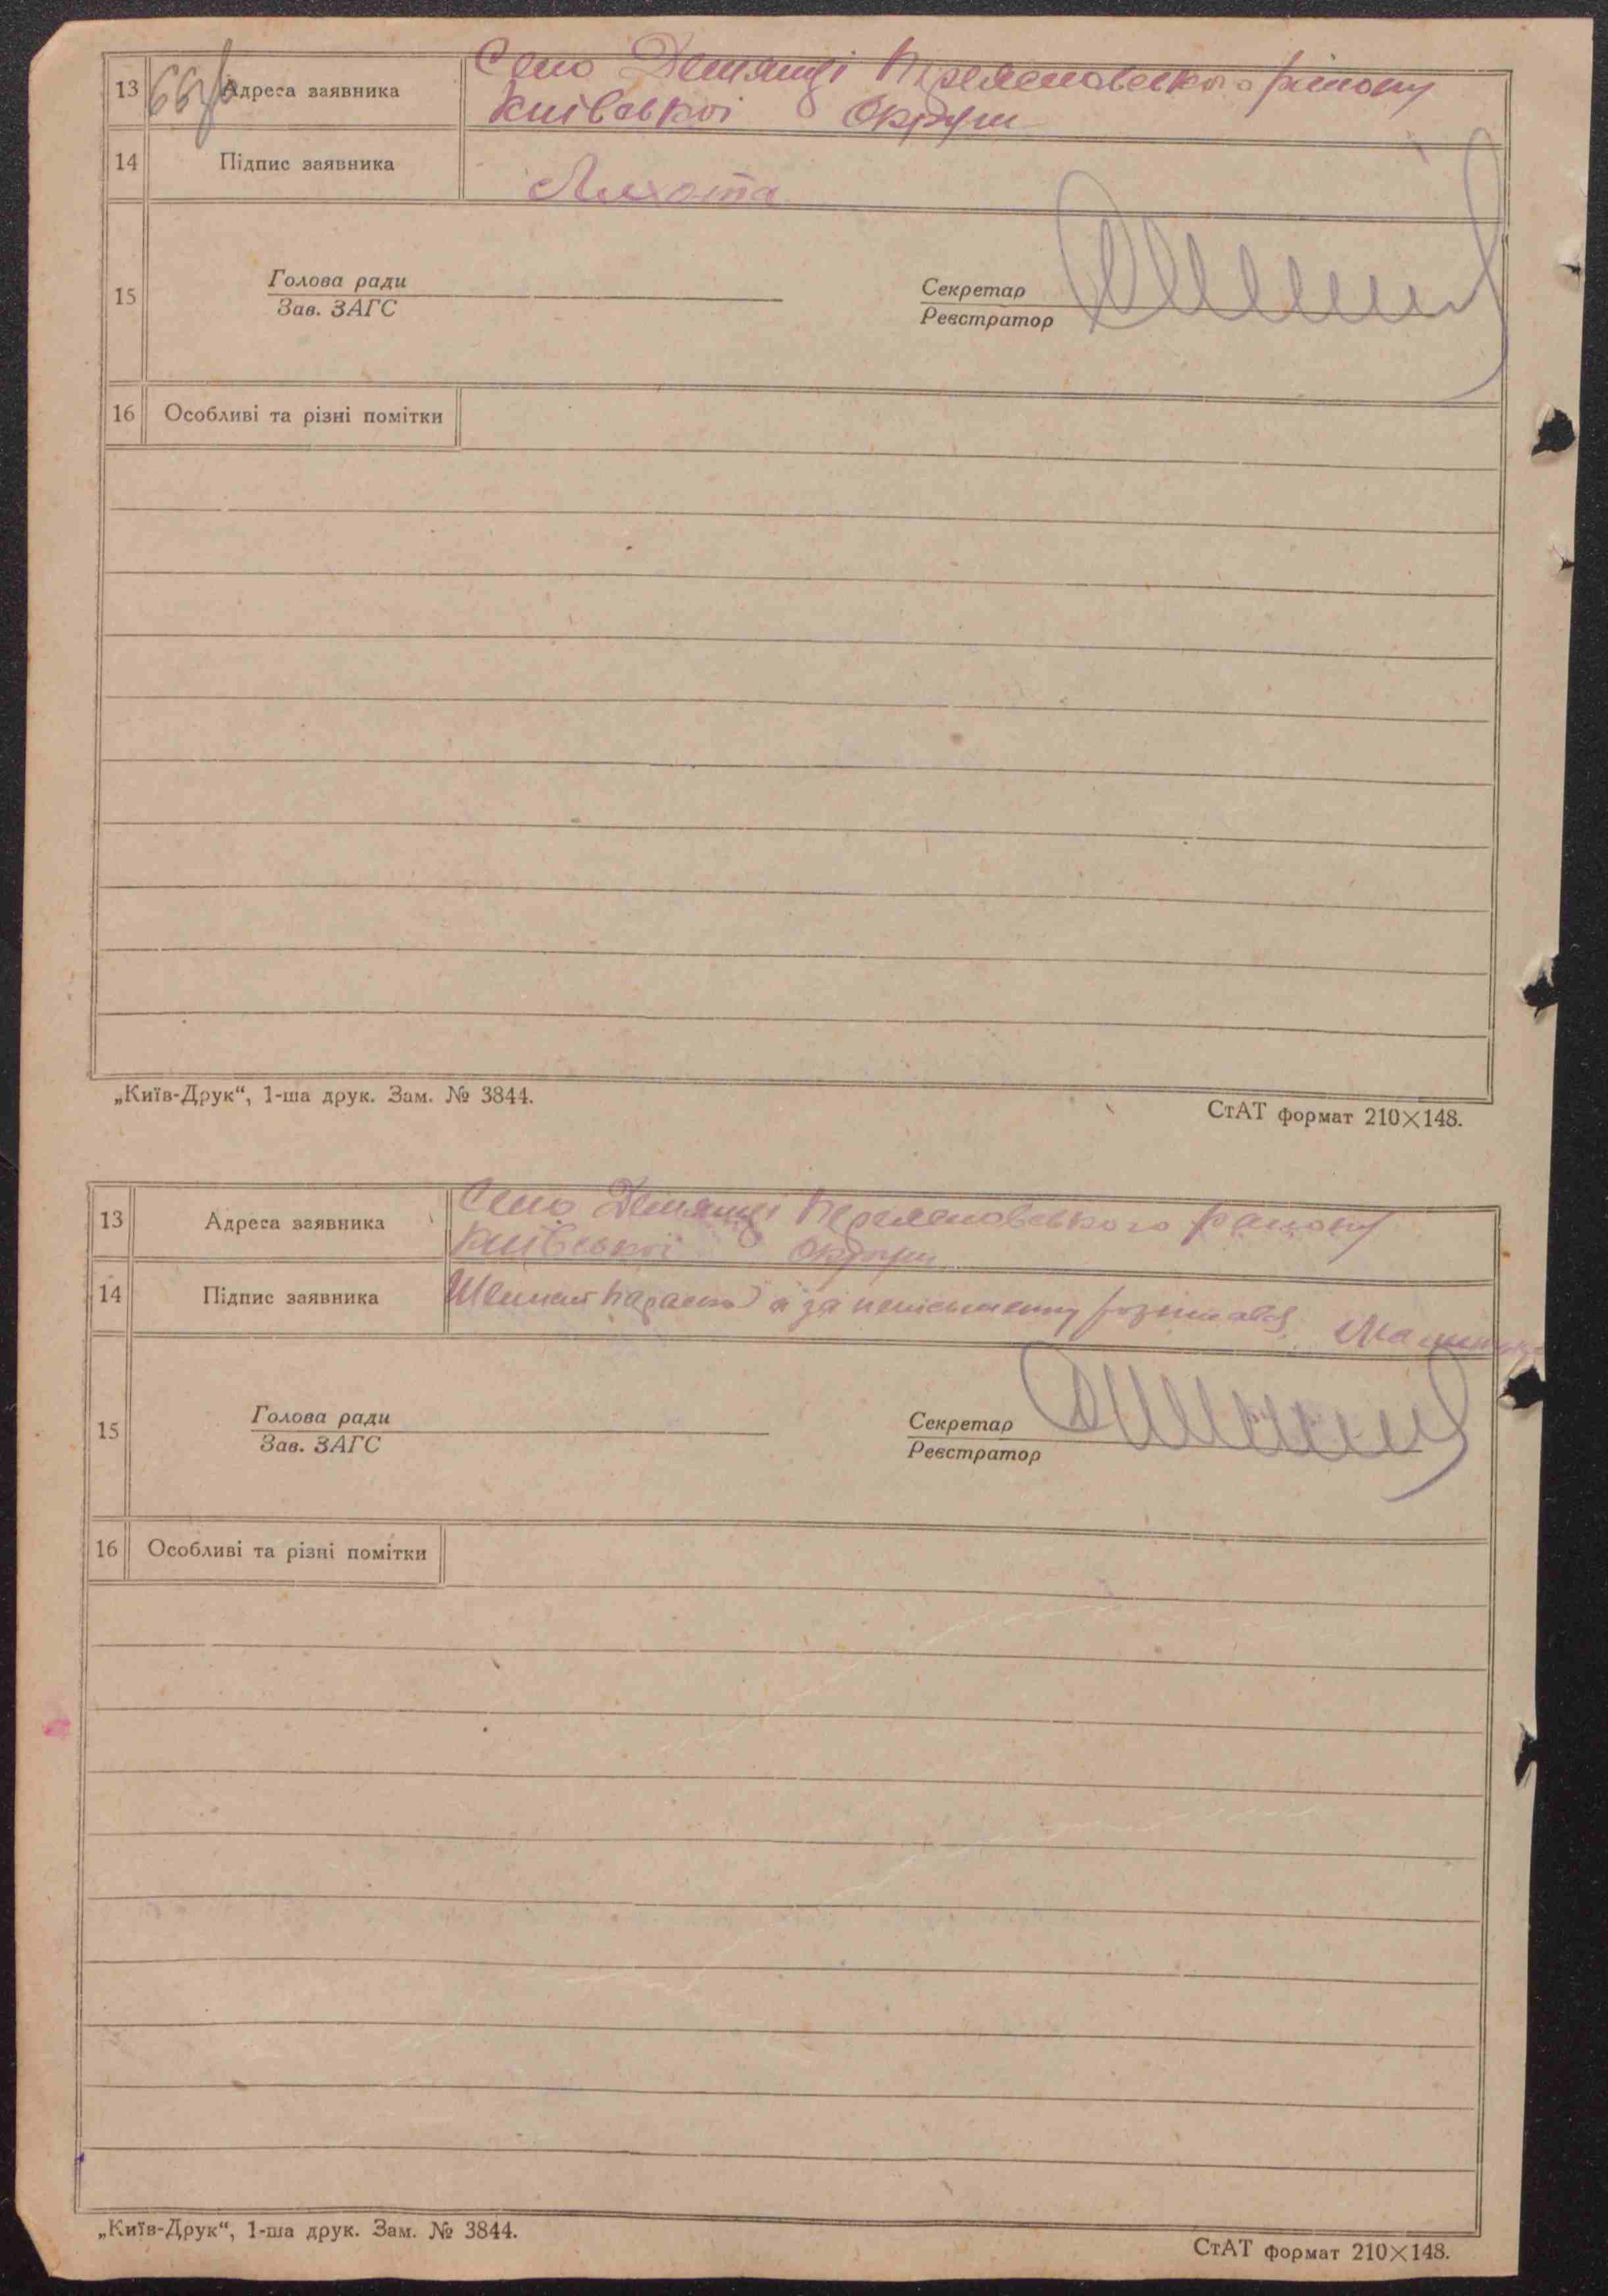 13 Адреса заявника Село Демянці Переяславського району
Київської Округи
14 Підпис заявника
15 Голова ради
Зав. ЗАГС
Секретар
Реєстратор
16 Особливі та різні помітки
„Київ-Друк“, 1-ша друк. Зам. № 3844.
СтАТ формат 210×148.
13 Адреса заявника Село Демянці Переяславського району
Київської Округи
14 Підпис заявника а за неписьменну
15 Голова ради
Зав. ЗАГС
Секретар
Реєстратор
16 Особливі та різні помітки
„Київ-Друк“, 1-ша друк. Зам. № 3844.
СтАТ формат 210×148.